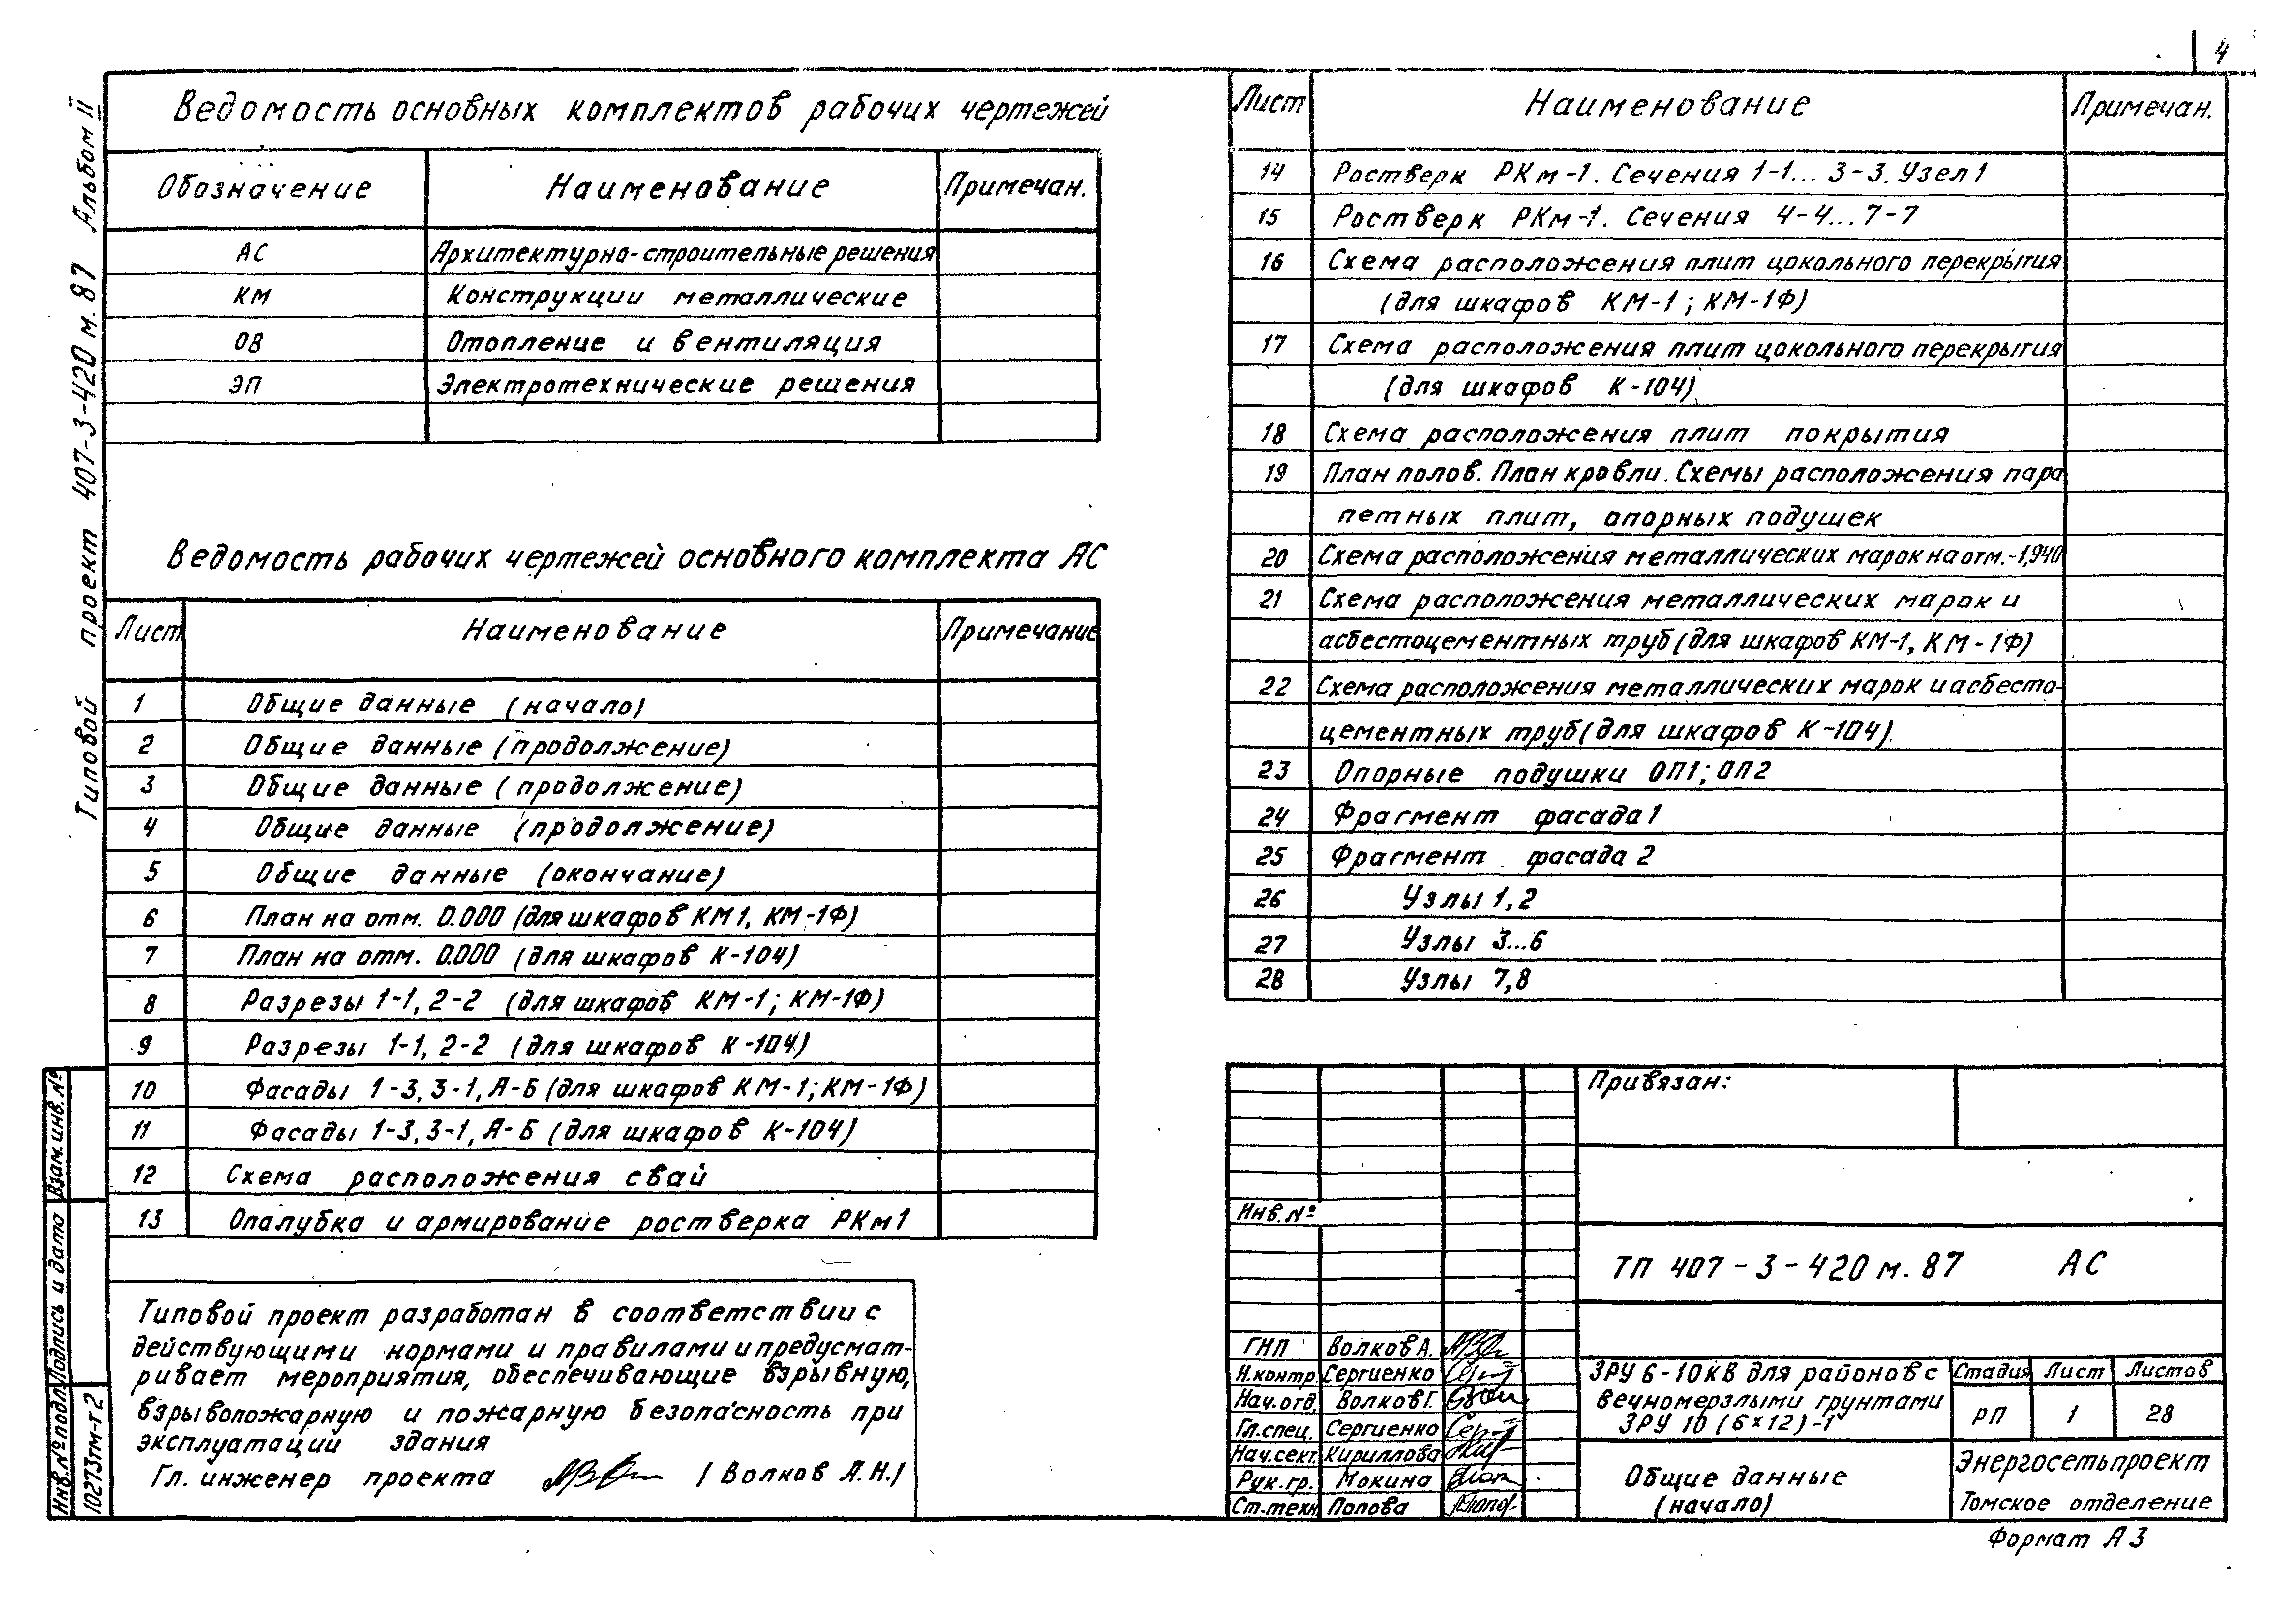 4
Типовой проект 407-3-420 м. 87 Альбом II
Ведомость основных комплектов рабочих чертежей
Обозначение Наименование Примечан.
АС Архитектурно-строительные решения
КМ Конструкции металлические
ОВ Отопление и вентиляция
ЭП Электротехнические решения
Ведомость рабочих чертежей основного комплекта АС
Лист Наименование Примечание
1 Общие данные (начало)
2 Общие данные (продолжение)
3 Общие данные (продолжение)
4 Общие данные (продолжение)
5 Общие данные (окончание)
6 План на отм. 0.000 (для шкафов КМ1, КМ-1Ф)
7 План на отм. 0.000 (для шкафов К-104)
8 Разрезы 1-1, 2-2 (для шкафов КМ-1; КМ-1Ф)
9 Разрезы 1-1, 2-2 (для шкафов К-104)
10 Фасады 1-3, 3-1, А-Б (для шкафов КМ-1; КМ-1Ф)
11 Фасады 1-3, 3-1, А-Б (для шкафов К-104)
12 Схема расположения свай
13 Опалубка и армирование ростверка РКм1
Типовой проект разработан в соответствии с
действующими нормами и правилами и предусмат-
ривает мероприятия, обеспечивающие взрывную,
взрывопожарную и пожарную безопасность при
эксплуатации здания
Гл. инженер проекта / Волков А.Н./
Лист Наименование Примечан.
14 Ростверк РКм-1. Сечения 1-1... 3-3. Узел 1
15 Ростверк РКм-1. Сечения 4-4...7-7
16 Схема расположения плит цокольного перекрытия
(для шкафов КМ-1; КМ-1Ф)
17 Схема расположения плит цокольного перекрытия
(для шкафов К-104)
18 Схема расположения плит покрытия
19 План полов. План кровли. Схемы расположения пара
петных плит, опорных подушек
20 Схема расположения металлических марок на отм.-1,940
21 Схема расположения металлических марок и
асбестоцементных труб (для шкафов КМ-1, КМ-1Ф)
22 Схема расположения металлических марок и асбесто-
цементных труб (для шкафов К-104)
23 Опорные подушки ОП1; ОП2
24 Фрагмент фасада 1
25 Фрагмент фасада 2
26 Узлы 1,2
27 Узлы 3...6
28 Узлы 7,8
Привязан:
Инв.№
ТП 407-3-420 м. 87 АС
ГНП Волков А.
Н.контр. Сергиенко
Нач.отд. Волков Г.
Гл.спец. Сергиенко
Нач.сект. Кириллова
Рук.гр. Мокина
Ст.техн. Попова
ЗРУ 6-10 кВ для районов с
вечномерзлыми грунтами
ЗРУ 10 (6×12)-1
Стадия Лист Листов
РП 1 28
Общие данные
(начало)
Энергосетьпроект
Томское отделение
Формат А3
Взам.инв.№
Подпись и дата
Инв.№ подл.
10273тм-т2